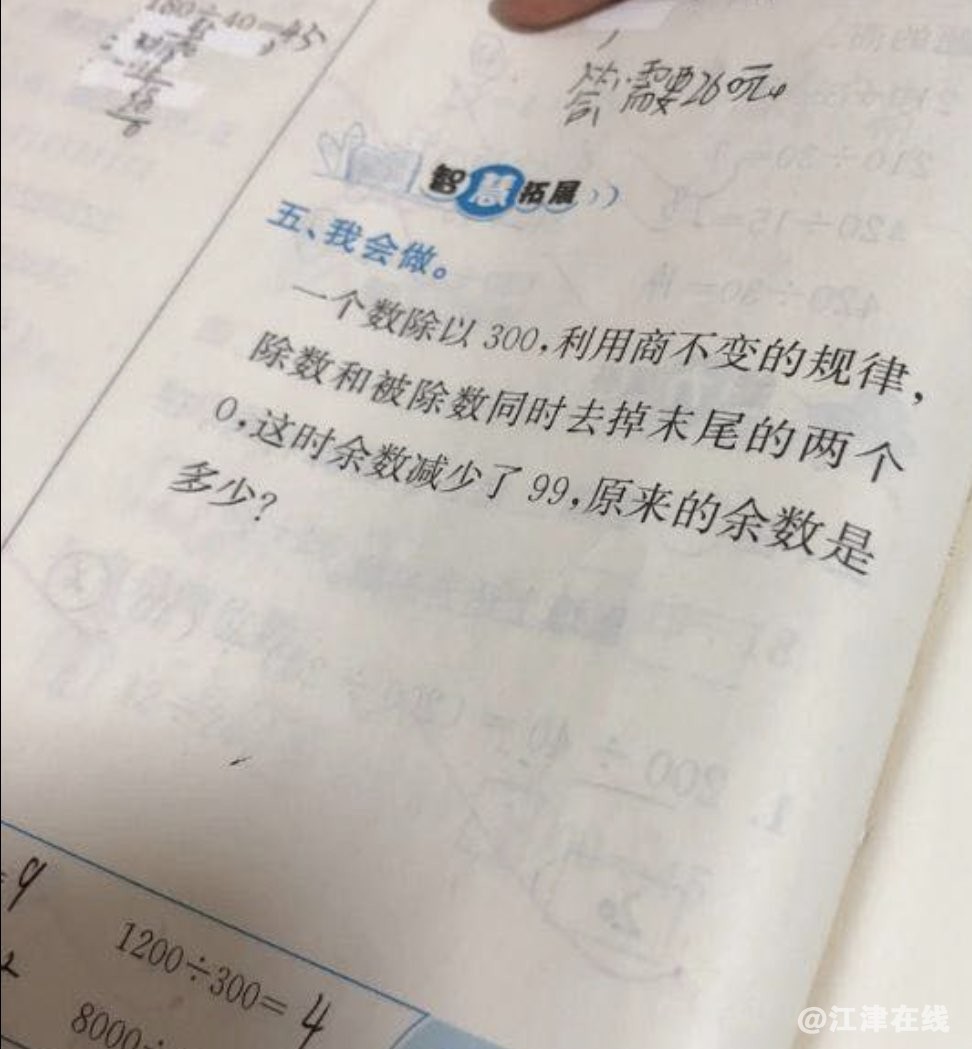 180÷40=45
答:需要260元。
智慧拓展
五、我会做。
一个数除以300,利用商不变的规律,
除数和被除数同时去掉末尾的两个
0,这时余数减少了99,原来的余数是
多少?
=9
1200÷300=4
2
8000÷
@江津在线